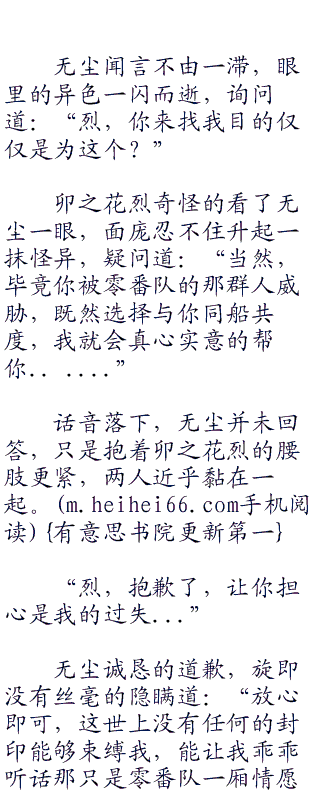 无尘闻言不由一滞，眼
里的异色一闪而逝，询问
道：“烈，你来找我目的仅
仅是为这个？”
卯之花烈奇怪的看了无
尘一眼，面庞忍不住升起一
抹怪异，疑问道：“当然，
毕竟你被零番队的那群人威
胁，既然选择与你同船共
度，我就会真心实意的帮
你.. ....”
话音落下，无尘并未回
答，只是抱着卯之花烈的腰
肢更紧，两人近乎黏在一
起。(m.heihei66.com手机阅
读){有意思书院更新第一}
“烈，抱歉了，让你担
心是我的过失...”
无尘诚恳的道歉，旋即
没有丝毫的隐瞒道：“放心
即可，这世上没有任何的封
印能够束缚我，能让我乖乖
听话那只是零番队一厢情愿